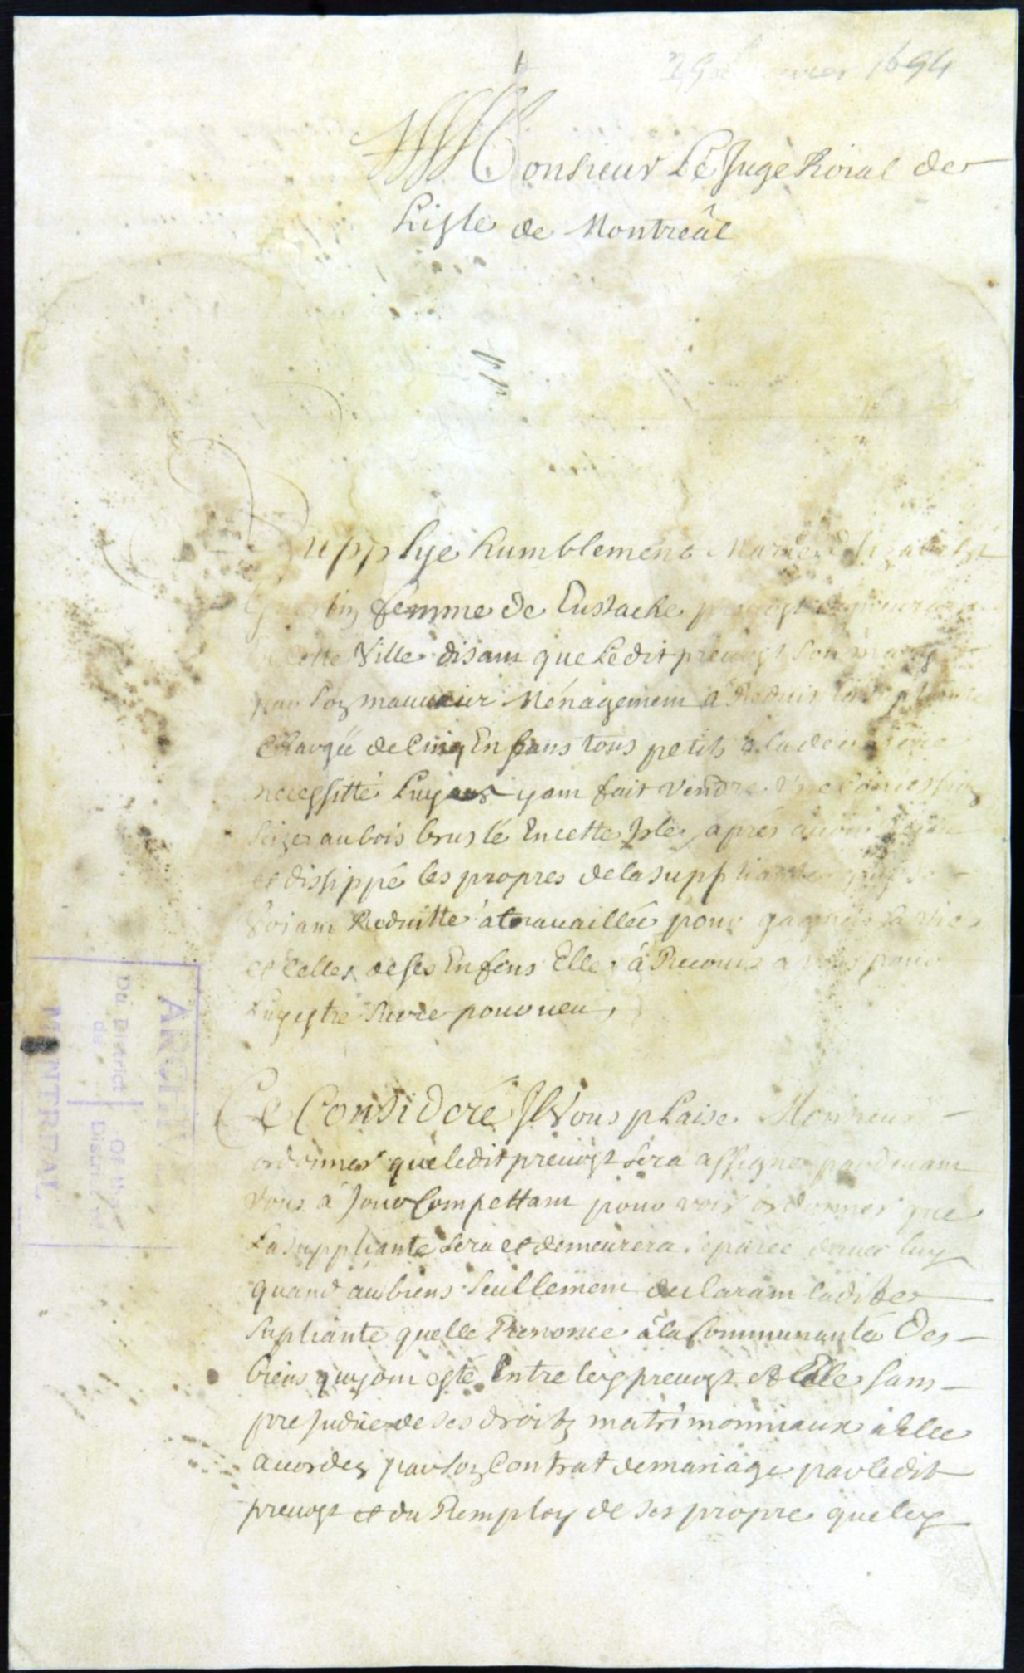 1694
Monsieur Le Juge Roial de
Lisle de Montreal
Supplye humblement Marie Elizabeth
femme de Eustache prevost demeurant
Ville disant que Ledit prevost son mary
par son mauvais Ménagement a Reduit
Chargée de Cinq Enfans tous petits a la derniere
necessitté Luy ayant fait Vendre Une Concession
size au bois bruslé En cette Isle, aprés avoir
et dissippé les propres de la suppliante
voiant Reduitte a travaillée pour gagner sa vie
et Celles de ses Enfens Elle à Recours a vous pour
Luy estre Surce pourveu,
Ce Considéré Il Vous plaise Monsieur
ordonner que ledit prevost sera assigner pardevant
vous a Jour Compettant pour voir ordonner que
La Suppliante sera et demeurera separée davec luy
quand au biens seullement declarant ladite
supliante quelle Renonce à la Communauté des
biens quy ont esté Entre ley prevost et Elle sans
prejudice de ses droits matrimonniaux a Elle
accordez par son Contrat de mariage par ledit
prevost et du Remploy de ses propre que ley
ARCHIVES
Du District | Of the
de | District of
MONTREAL